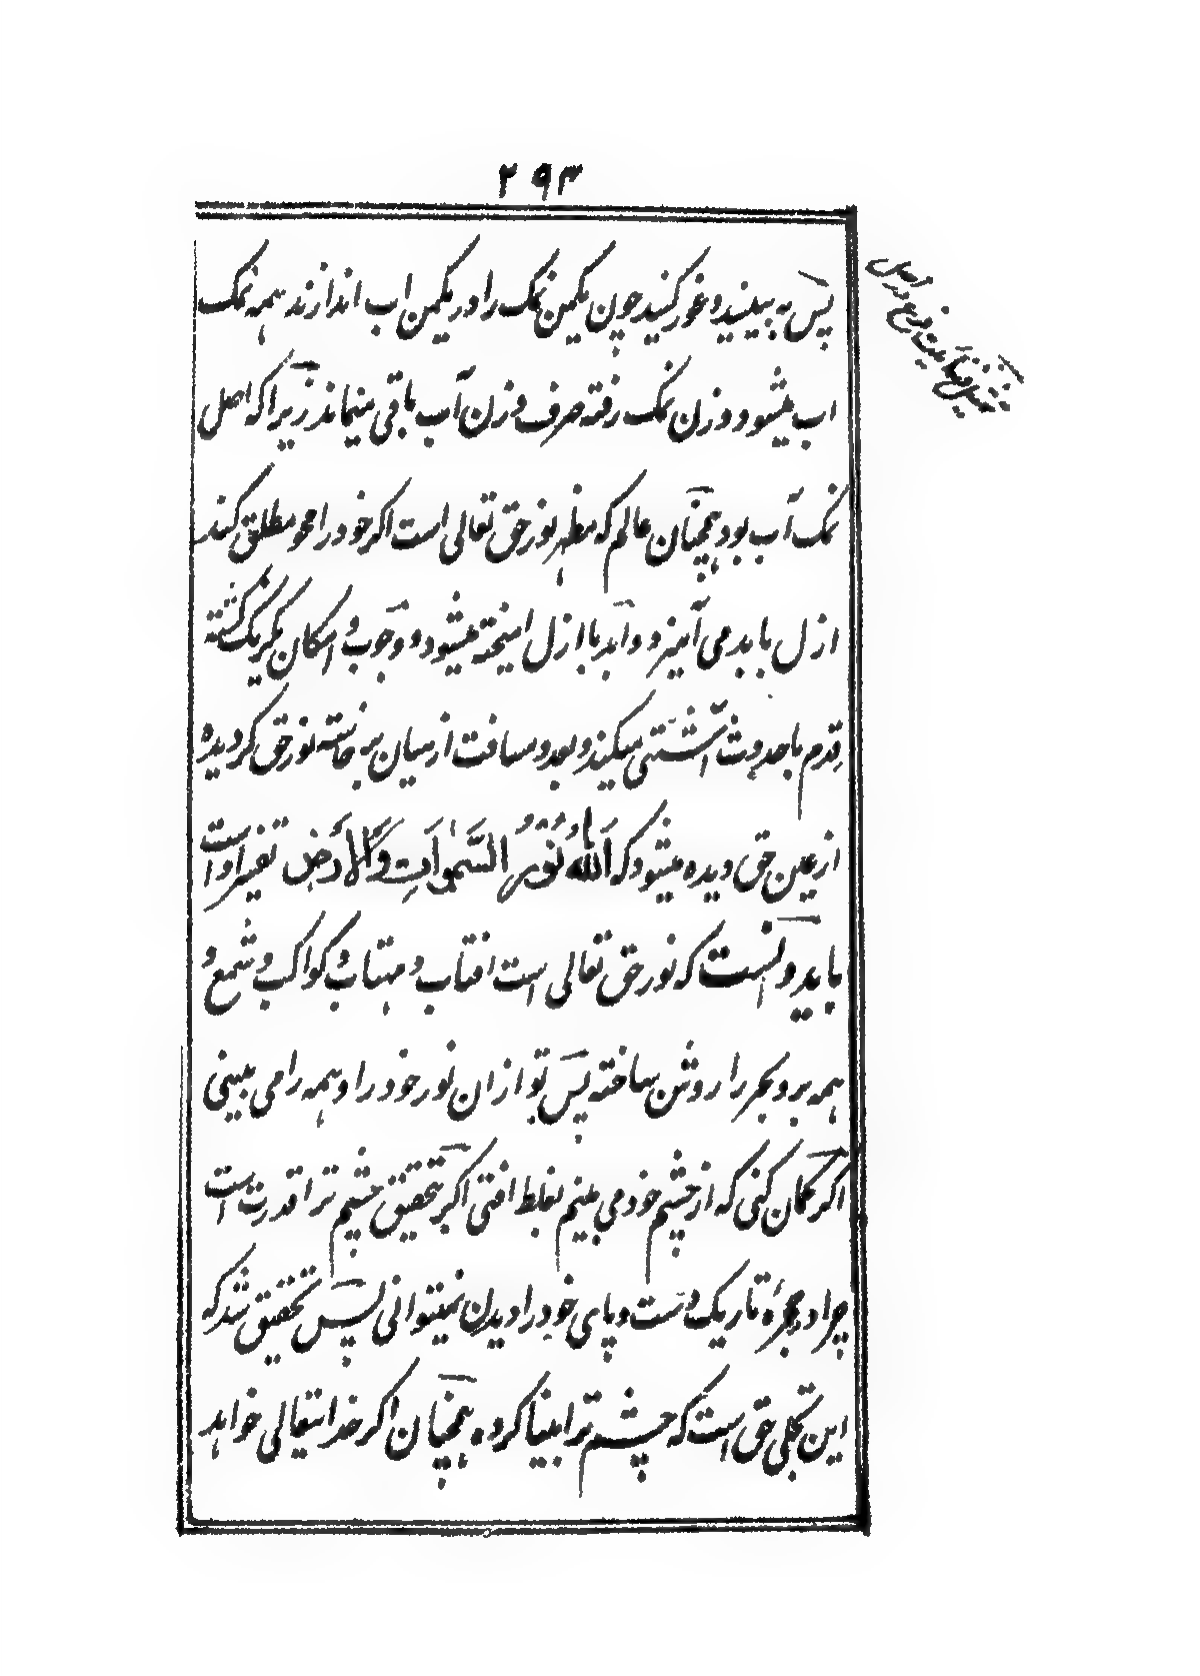 ۲۹۳
پس به بینید و غور کنید چون یکمن نمک را در یکمن اب اندازند همه نمک
اب میشود و وزن نمک رفته صرف وزن آب باقی مینماند زیرا که اصل
نمک آب بود همچنان عالم که مظهر نور حق تعالی است اکر خود را محو مطلق کند
ازل بابد می آمیزد و ابد باازل امیخته میشود و وجوب و امکان یکرنگ کشته
قدم باحدوث آشتی میکند و بعد و مسافت ازمیان برخاسته نور حق کردیده
ازعین حق دیده میشود که اَللّٰهُ نُوْرُ السَّمٰوَاتِ وَالْاَرْضِ تفسیر اوست
باید دانست که نور حق تعالی است افتاب و مهتاب و کواکب و شمع و
همه بر و بحر را روشن ساخته پس تو ازان نور خود را و همه را می بینی
اکر کمان کنی که از چشم خود می بینم بغلط افتی اکر بتحقیق چشم ترا قدرت است
چرا در حجرهٔ تاریک دست و پای خود را دیدن نمیتوانی پس تحقیق شد که
این تجلی حق است که چشم ترا بینا کرده همچنان اکر خدا تیعالی خواهد
تمثیل فنائیت فرع در اصل